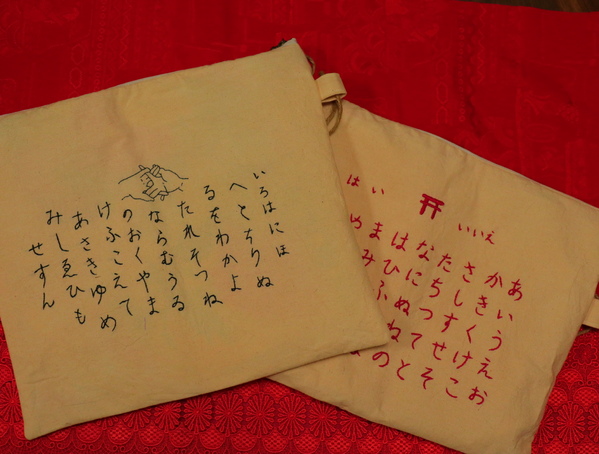 いろはにほ
へとちりぬ
るをわかよ
たれそつね
ならむうゐ
のおくやま
けふこえて
あさきゆめ
みしゑひも
せすん
はい
いいえ
あいうえお
かきくけこ
さしすせそ
たちつてと
なにぬねの
はひふ
まみ